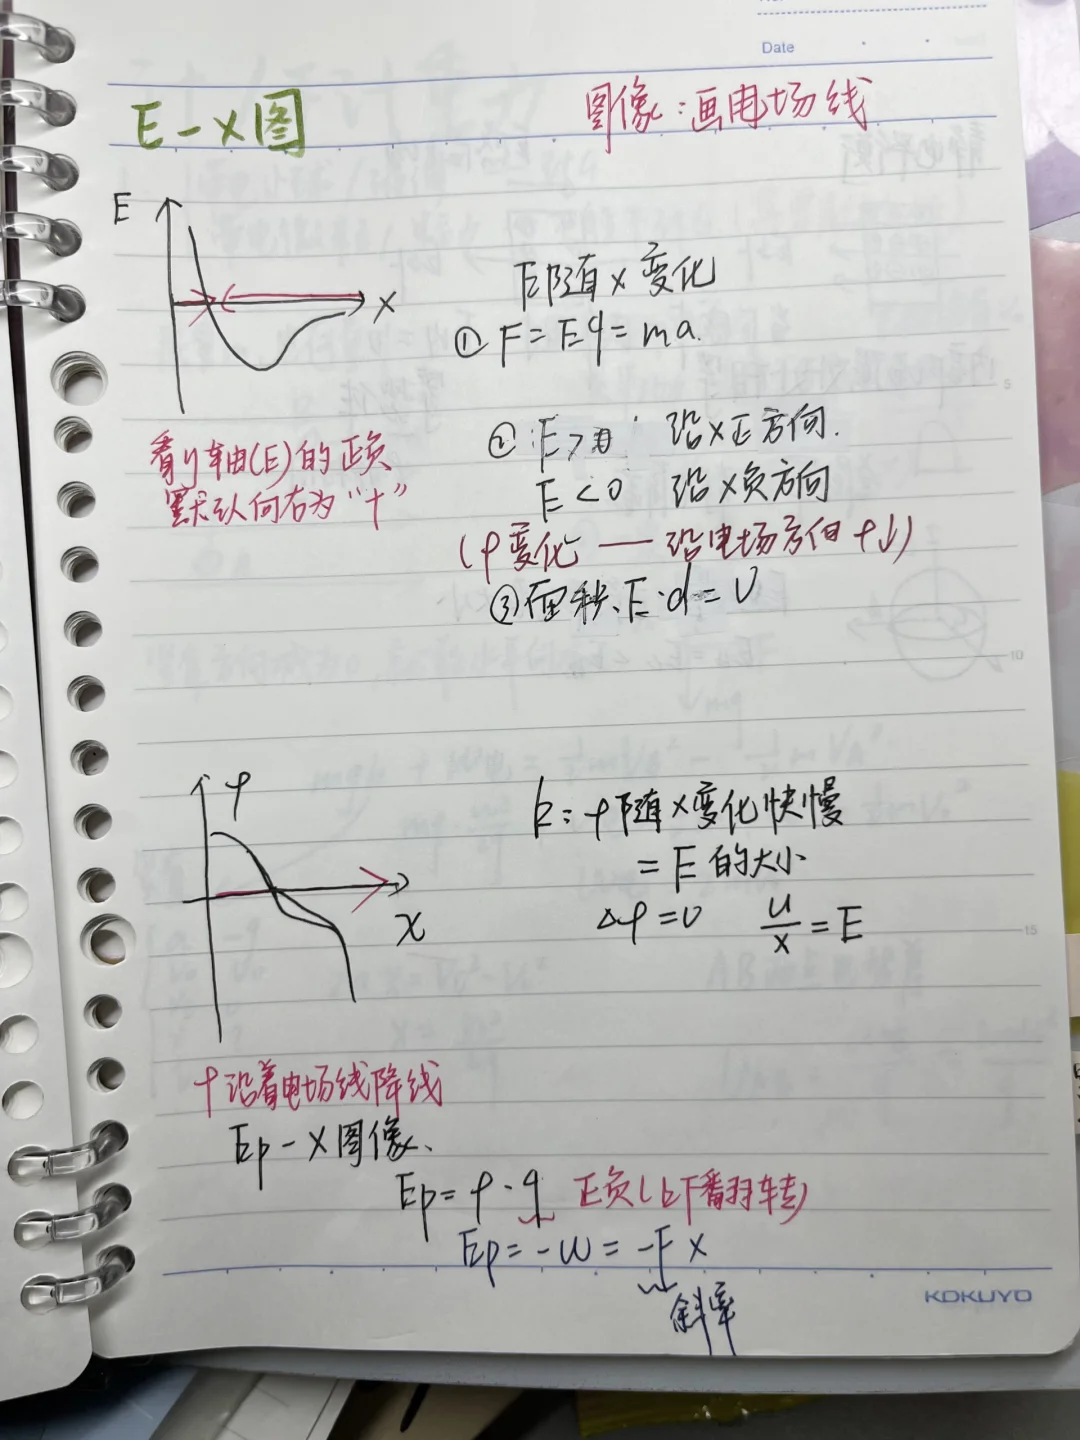 Date
E-x图
图像:画电场线
E
x
E随x变化
① F=Eq=ma.
② E>0 沿x正方向.
E<0 沿x负方向
(φ变化 — 沿电场方向φ↓)
③ 面积、E·d=U
看y轴(E)的正负
默认向右为“+”
φ
x
k=φ随x变化快慢
=E的大小
Δφ=U U/x=E
φ沿着电场线降线
Ep-x图像、
Ep=φ·q 正负(上下翻转)
Ep=-W=-Fx
斜率
KOKUYO
5
10
15